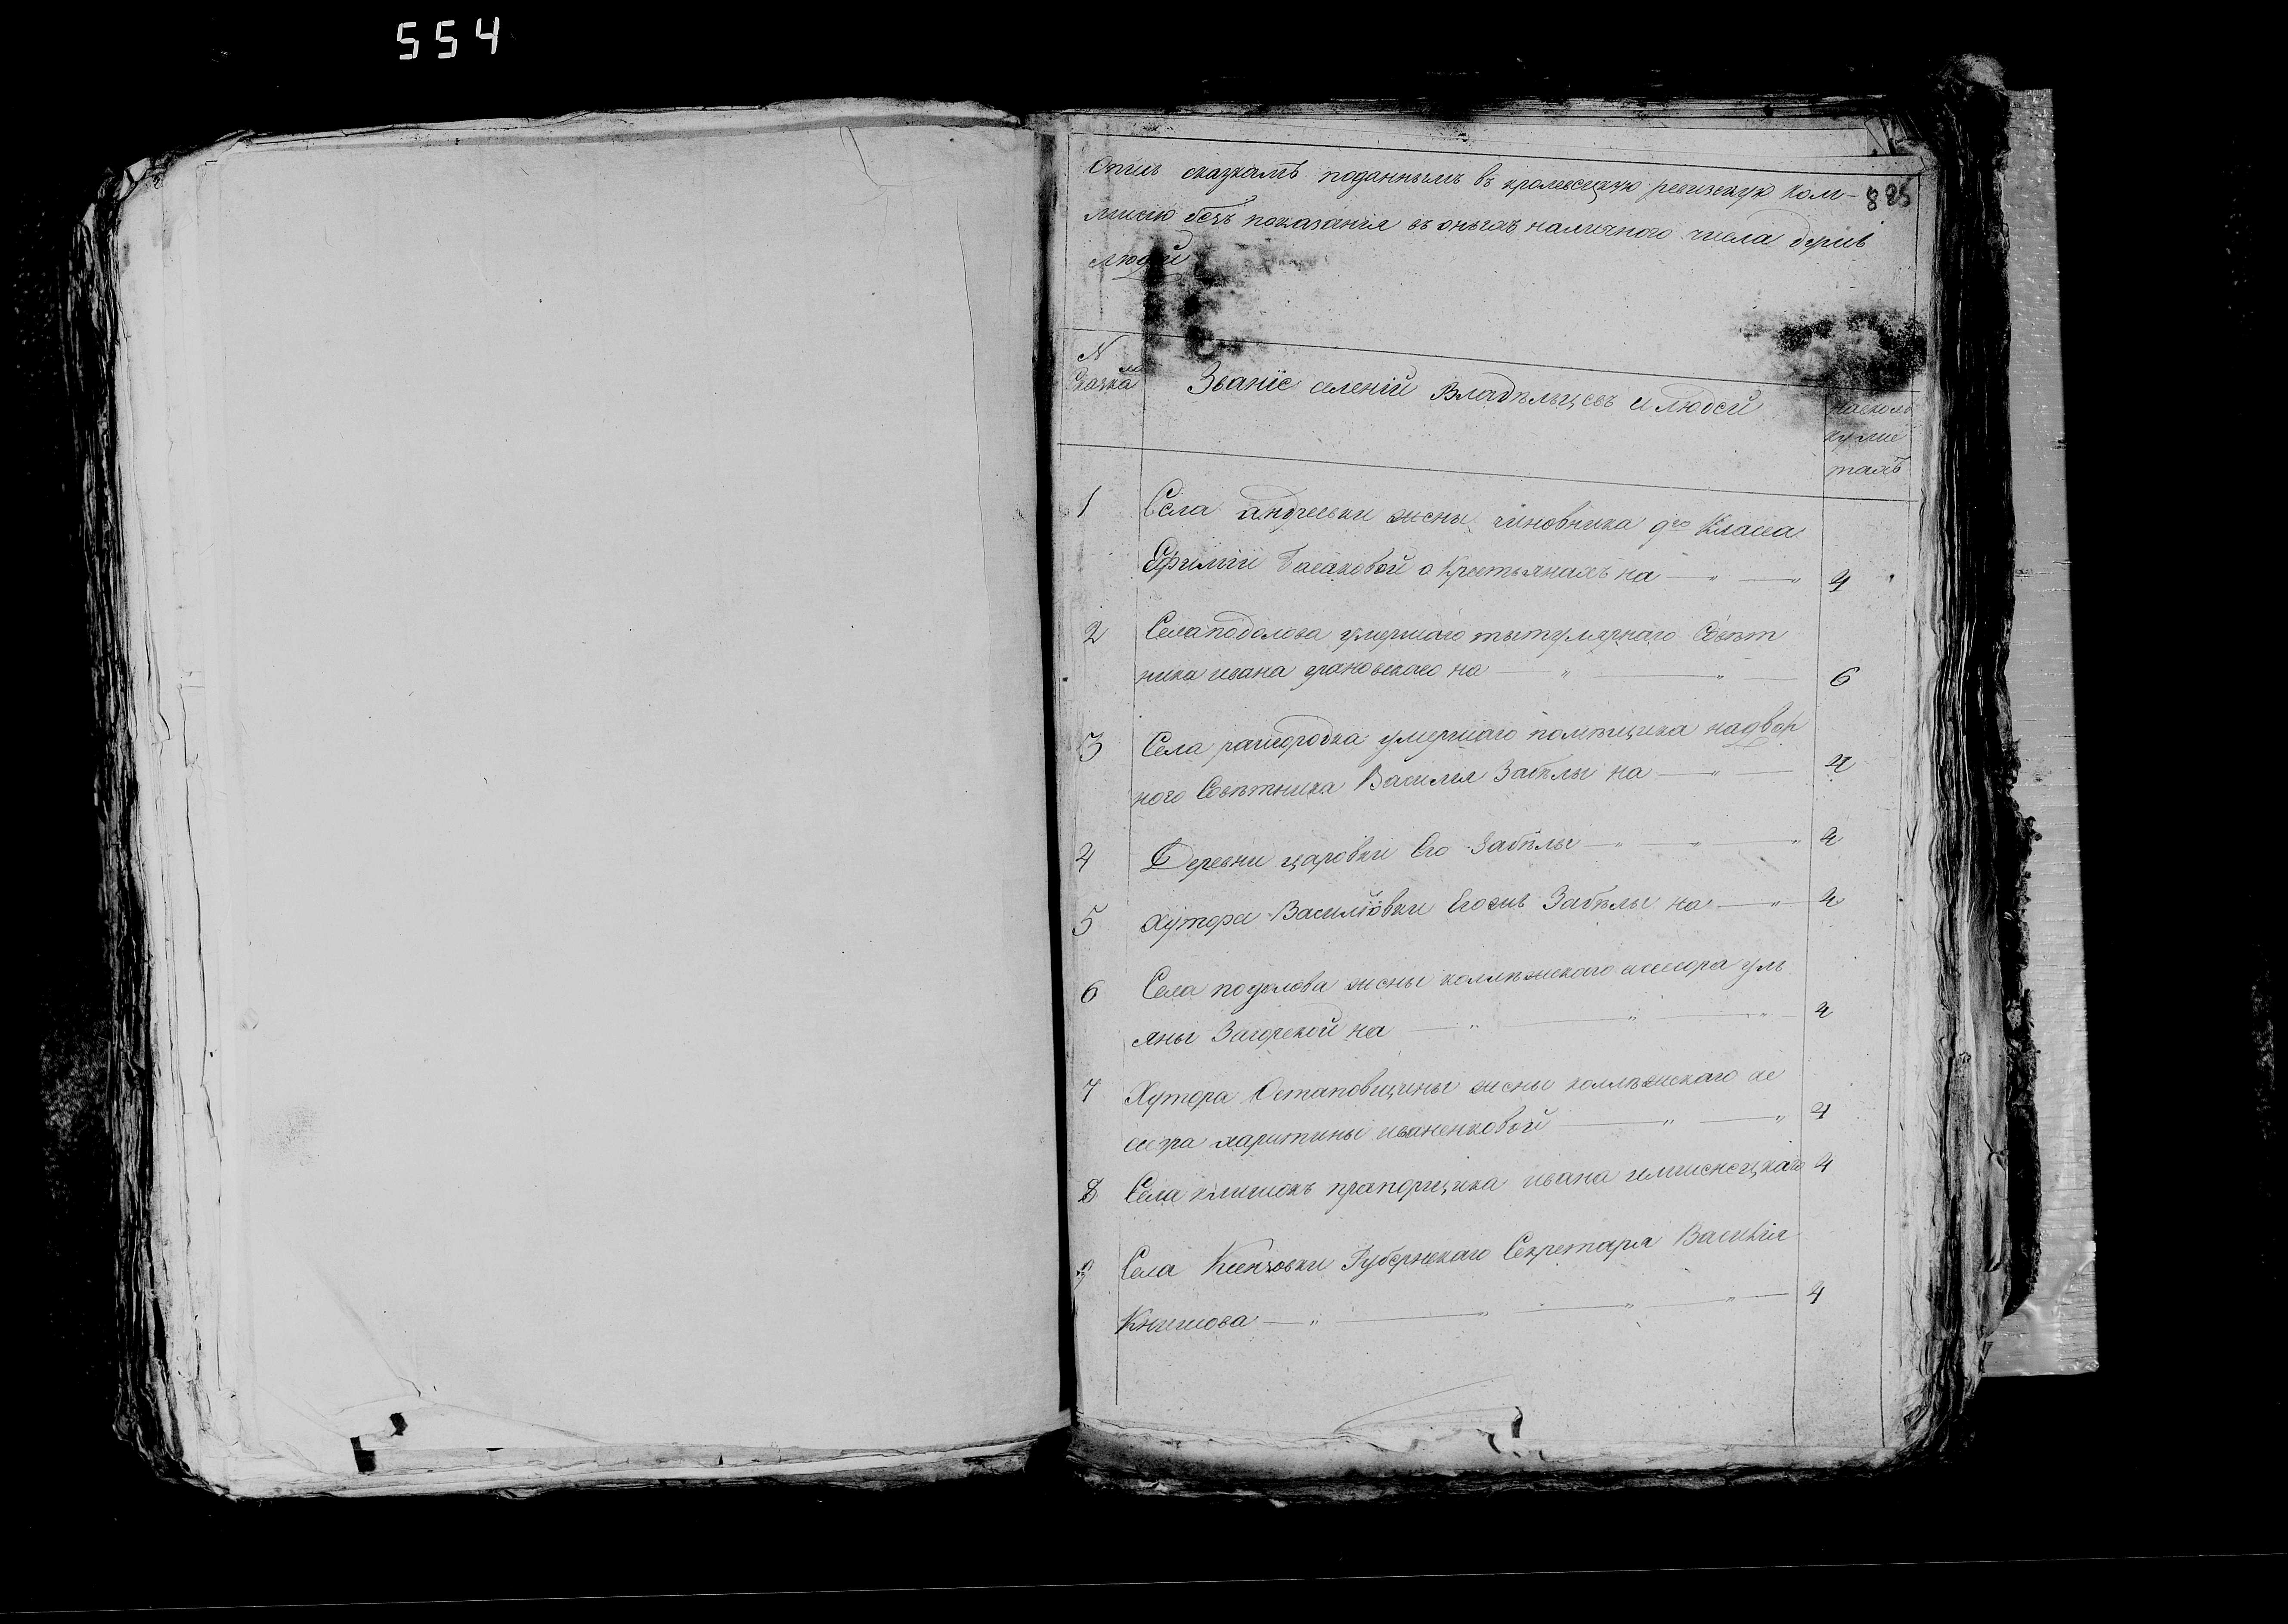 554
885
Опись сказкамъ поданнымъ въ кролевецкую ревизскую Ком-
мисію безъ показанія въ оныхъ наличного числа душъ
людей
N
сказкам
Званіе селеній Владѣльцовъ и людей
насколь
ку лис
тахъ
1 Села андреевки жены чиновника 9го Класса
Ефиміи о Крестьянахъ на — „ — „ 4
2 Села подолова умершаго тытулярнаго Совѣт
ника ивана грановскаго на — „ — „ — 6
3 Села райгородка умершаго помѣщика надвор
ного Совѣтника Василія Забѣлы на — „ — 4
4 Деревни царовки Его Забѣлы — „ — „ — „ 4
5 Хутора Василіовки Егожъ Забѣлы на — „ 4
6 Села подолова жены коллѣжскаго ассесора уль
яны Загорской на — „ — „ — „ — 4
7 Хутора Остаповщины жены коллѣжскаго ас
сесора харитины иваненковой — „ — „ 4
8 Села клишокъ прапорщика ивана 4
9 Села Губернскаго Секретаря Василія
Книшова — „ — „ — „ — „ — 4